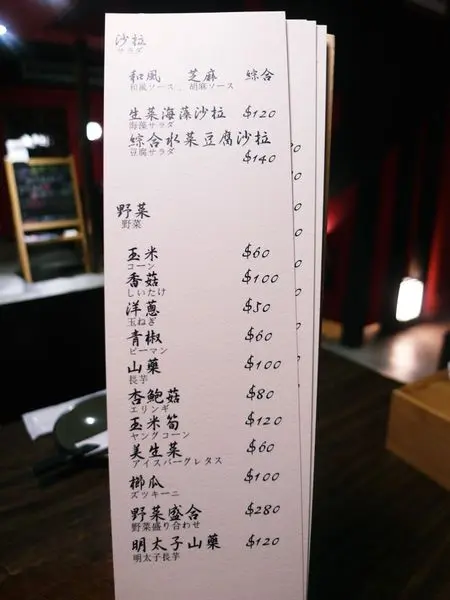 沙拉
サラダ
和風 芝麻 綜合
和風ソース 、胡麻ソース
生菜海藻沙拉 $120
海藻サラダ
綜合水菜豆腐沙拉
豆腐サラダ $140
野菜
野菜
玉米 $60
コーン
香菇 $100
しいたけ
洋蔥 $50
玉ねぎ
青椒 $60
ピーマン
山藥 $100
長芋
杏鮑菇 $80
エリンギ
玉米筍 $120
ヤングコーン
美生菜 $60
アイスバーグレタス
櫛瓜 $100
ズッキーニ
野菜盛合 $280
野菜盛り合わせ
明太子山藥 $120
明太子長芋